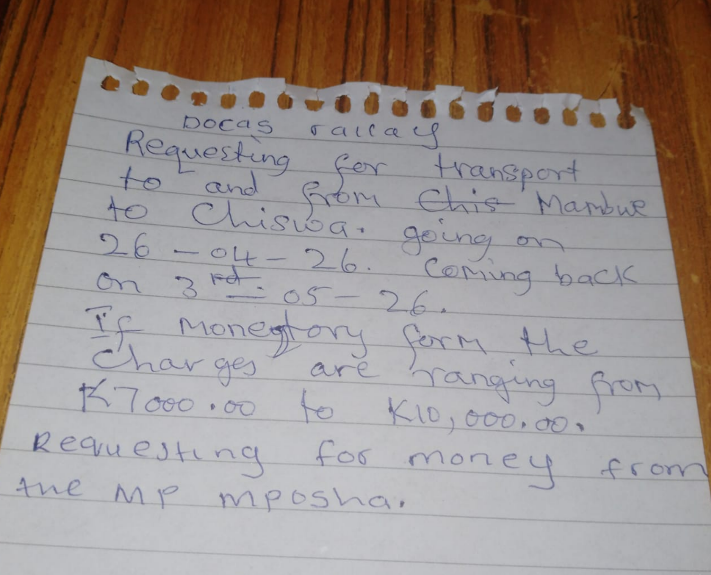 Docas rallay
Requesting for transport
to and from Chis Mambwe
to Chiswa. going on
26 - 04 - 26. Coming back
on 3rd - 05 - 26.
If monetory form the
Charges are ranging from
K7000.00 to K10,000.00.
Requesting for money from
the MP mposha.